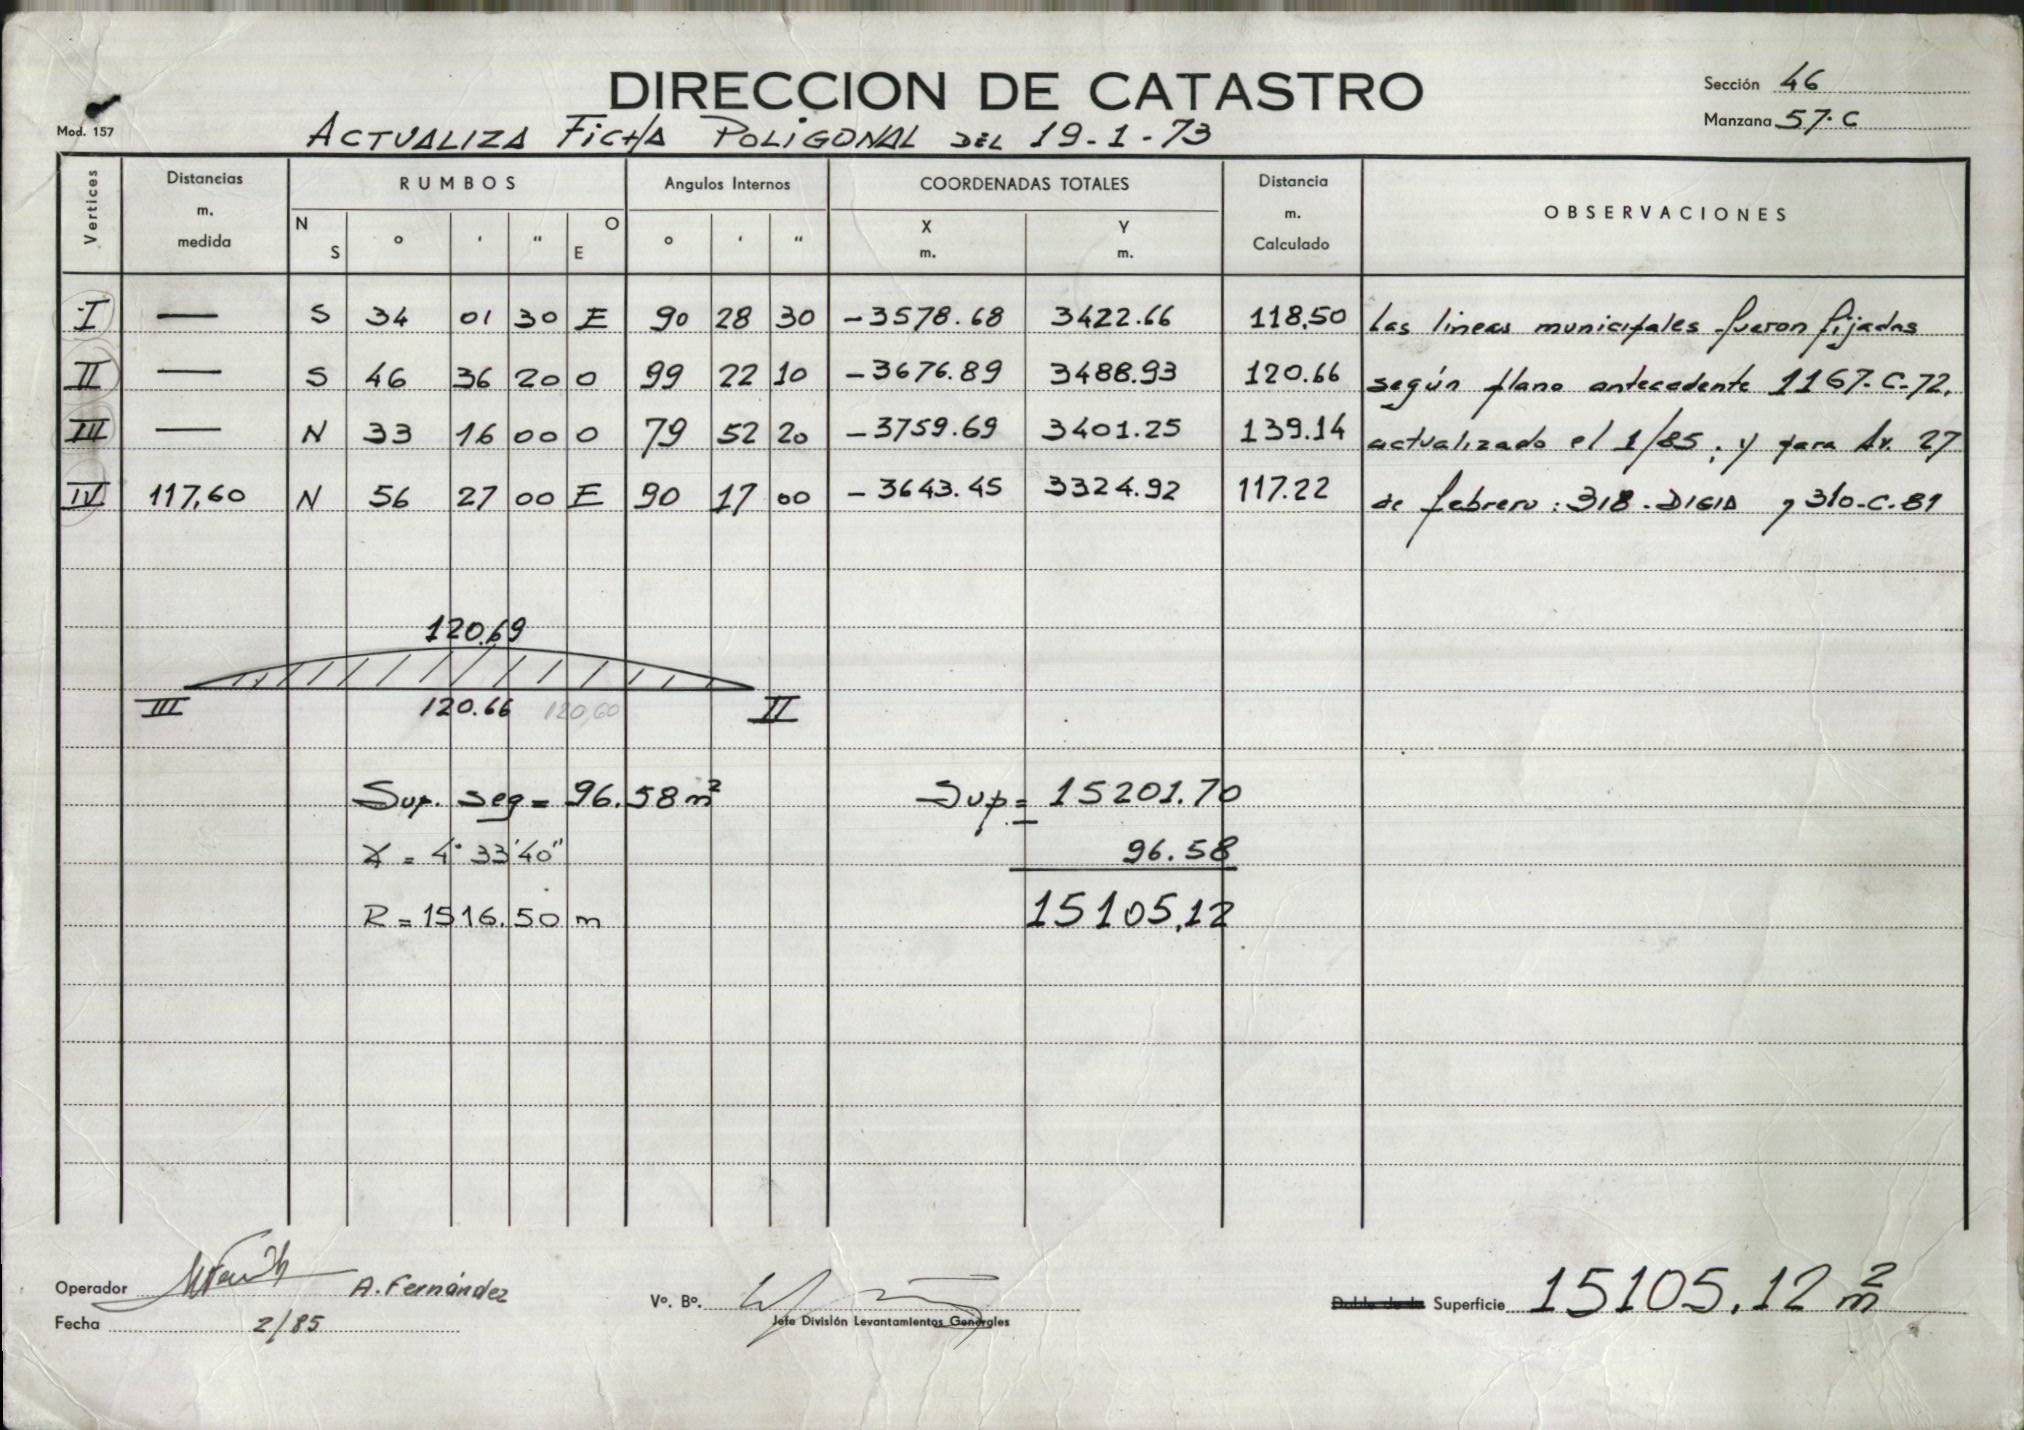 DIRECCION DE CATASTRO
Sección 46
Manzana 57-C
Mod. 157
ACTUALIZA FICHA POLIGONAL DEL 19-1-73
Vertices Distancias m. medida RUMBOS N S ° ' " O E Angulos Internos ° ' " COORDENADAS TOTALES X m. Y m. Distancia m. Calculado OBSERVACIONES
I — S 34 01 30 E 90 28 30 -3578.68 3422.66 118,50 Las lineas municipales fueron fijadas
II — S 46 36 20 O 99 22 10 -3676.89 3488.93 120.66 según plano antecedente 1167-C-72,
III — N 33 16 00 O 79 52 20 -3759.69 3401.25 139.14 actualizado el 1/85; y para Av. 27
IV 117,60 N 56 27 00 E 90 17 00 -3643.45 3324.92 117.22 de febrero: 318-DIGID y 310-C-81
120.69
III 120.66 120,60 II
Sup. seg = 96.58 m² Sup = 15201.70
∡ = 4° 33' 40" 96.58
R = 1516.50 m 15105,12
Operador A. Fernández
Fecha 2/85
Vº. Bº.
Jefe División Levantamientos Generales
Superficie 15105,12 m²